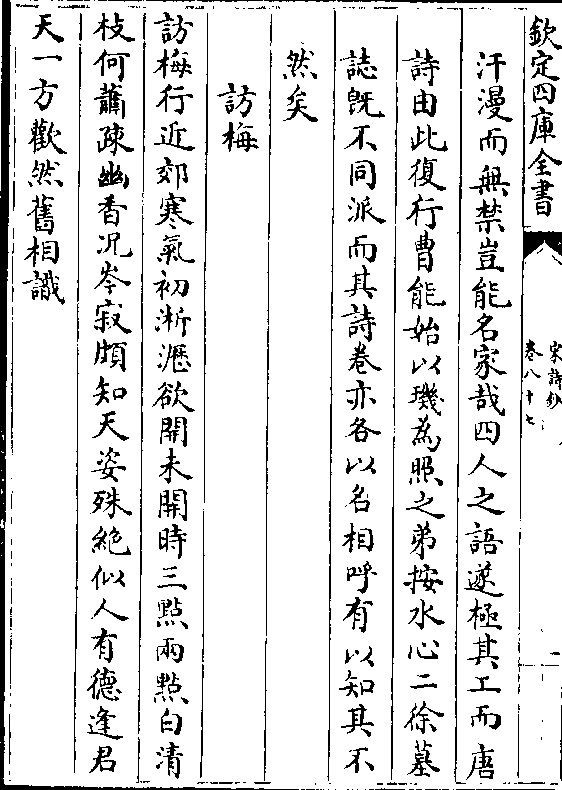 欽定四庫全書
宋詩鈔
卷八十七
汗漫而無禁豈能名家哉四人之語遂極其工而唐
詩由此復行曹能始以璣為照之弟按水心二徐墓
誌既不同派而其詩卷亦各以名相呼有以知其不
然矣
訪梅
訪梅行近郊寒氣初淅瀝欲開未開時三點兩點白清
枝何蕭疎幽香况岑寂頗知天姿殊絶似人有德逢君
天一方歡然舊相識